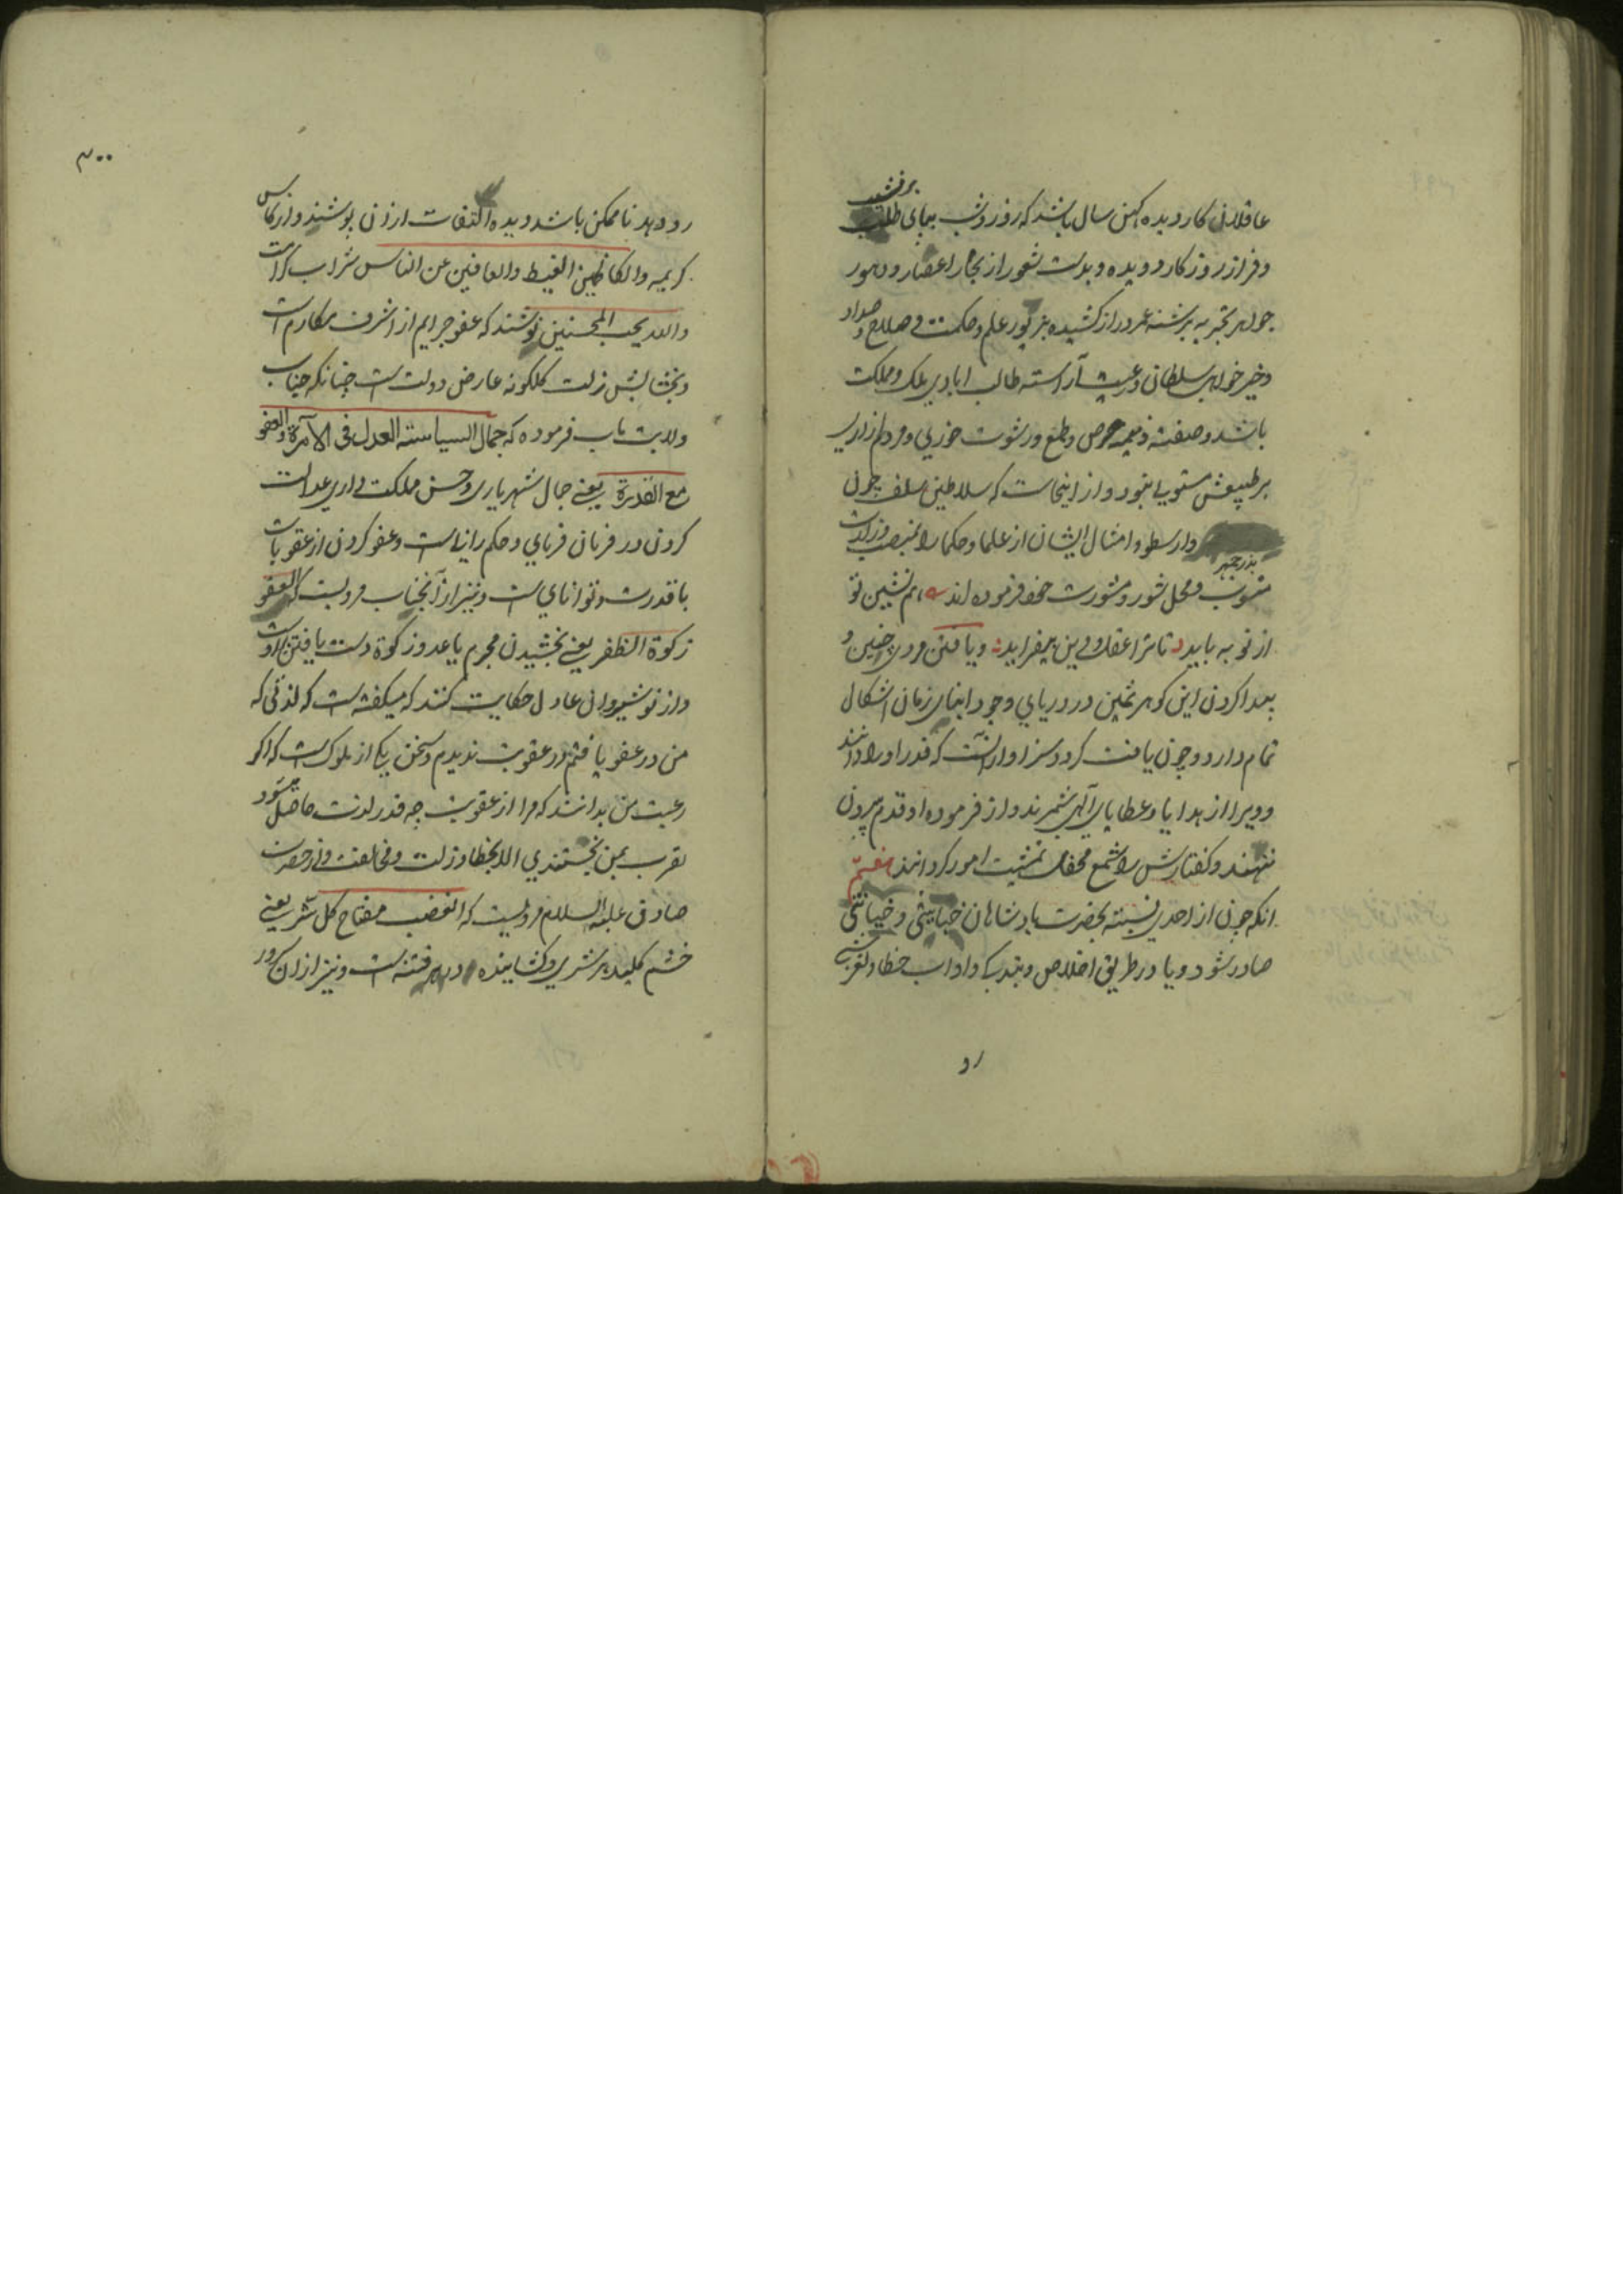 عاقلان کار دیده کهن سال باشد که روز و شب بپای طلب
بر نشیب
و فراز روزکار دویده و بدست شعور از بحار اعصار و دهور
جواهر تجربه برشته عمر دراز کشیده بزیور علم و حکمت و صلاح و سداد
و خیر خواهی سلطان و رعیت آراسته طالب ابادی ملک و مملکت
باشد و صفت ذمیمه حرص و طمع و رشوت خوری و مردم ازاری
بر طبیعتش مستولی نبود و از اینجاست که سلاطین سلف چون
بوذرجمهر
و ارسطو و امثال ایشان از علما و حکما را بمنصب وزارت
منسوب و محل شور و مشورت خود فرموده اند هم نشین تو
از تو به باید تا ترا عقل و دین بیفزاید و یافتن مردی چنین و
پیدا کردن این کوهر ثمین در دریای وجود ابنای زمان اشکال
تمام دارد و چون یافت کردد سزاوار انست که قدر او را دانند
و ویرا از هدایا و عطایای الهی شمرند و از فرموده او قدم بیرون
ننهند و کفتارش را شمع محفل تمشیت امور کردانند
انکه چون از احدی نسبت بحضرت پادشاهان خباثتی و خیانتی
صادر شود و یا در طریق اخلاص و بندکی و اداب خطا و لغزشی
رو
۳۰۰
رو دهد تا ممکن باشد دیده التفات از ان پوشند و از کاس
کریمه والکاظمین الغیظ والعافین عن الناس شراب کرامت
والله یحب المحسنین نوشند که عفو جرایم از اشرف مکارم است
و بخشایش زلت کلکونه عارض دولت است چنانکه جناب
ولایت ماب فرموده که جمال السیاسة العدل فی الامرة والعفو
مع القدرة یعنی جمال شهریاری و حسن مملکت داری عدالت
کردن در فرمان فرمای و حکم رانیست و عفو کردن از عقوبات
با قدرت و توانای است و نیز از آنجناب مرویست که العفو
زکوة الظفر یعنی بخشیدن مجرم یا عدو زکوة دست یافتن بر اوست
و از نوشیروان عادل حکایت کنند که میکفته است که لذتی که
من در عفو یافتم در عقوبت ندیدم و سخن یکی از ملوک است که اکر
رعیت من بدانند که مرا از عقوبت چه قدر لذت حاصل میشود
تقرب بمن نجستندی الا بخطا و زلت و مخالفت و از حضرت
صادق علیه السلام مرویست که الغضب مفتاح کل شر یعنی
خشم کلید هر شری و کشاینده در هر فتنه است و نیز از ان سرور